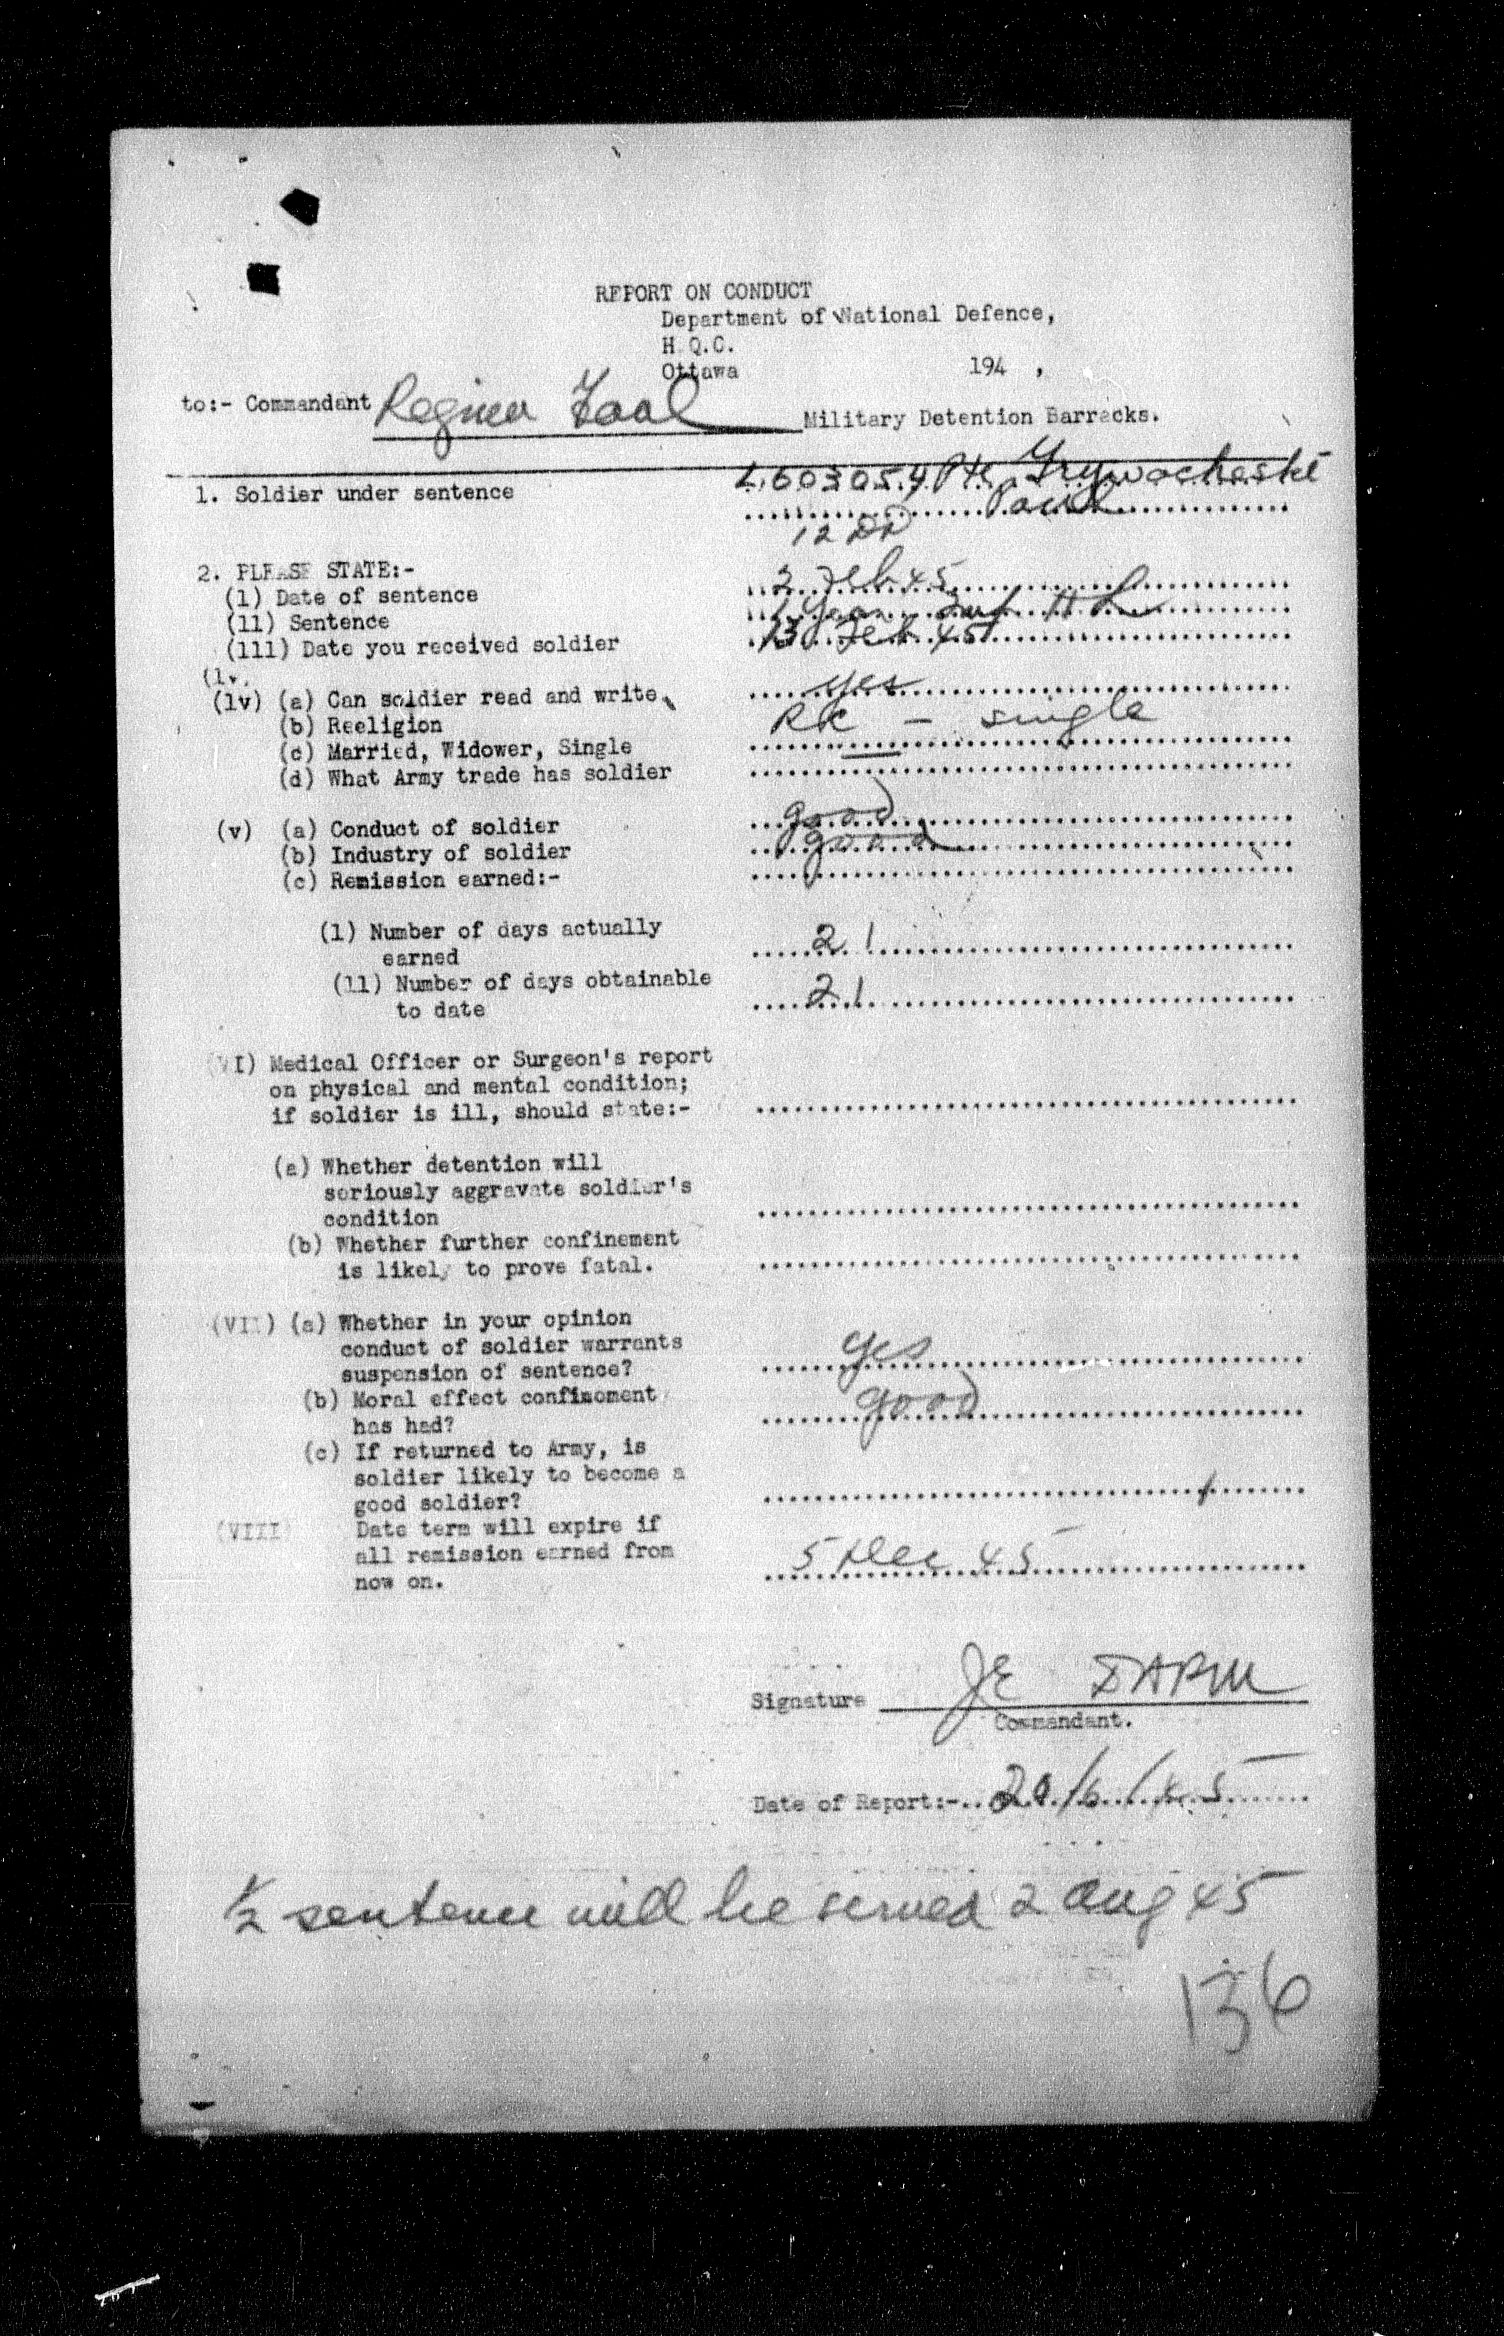 REPORT ON CONDUCT
Department of National Defence,
H.Q.C.
Ottawa 194 ,
to:- Commandant Regina Gaol Military Detention Barracks.
1. Soldier under sentence L603054 Pte Grywacheski
Paul
12 DD
2. PLEASE STATE:-
(1) Date of sentence 2 Feb 45
(11) Sentence 1 Year Imp H L
(111) Date you received soldier 13 Feb 45
(1v.
(1v) (a) Can soldier read and write, yes
(b) Reeligion RC - single
(c) Married, Widower, Single
(d) What Army trade has soldier
(v) (a) Conduct of soldier good
(b) Industry of soldier good
(c) Remission earned:-
(1) Number of days actually
earned 21
(11) Number of days obtainable
to date 21
(VI) Medical Officer or Surgeon's report
on physical and mental condition;
if soldier is ill, should state:-
(a) Whether detention will
seriously aggravate soldier's
condition
(b) Whether further confinement
is likely to prove fatal.
(VII) (a) Whether in your opinion
conduct of soldier warrants
suspension of sentence? yes
(b) Moral effect confinement
has had? good
(c) If returned to Army, is
soldier likely to become a
good soldier?
(VIII) Date term will expire if
all remission earned from
now on. 5 Dec 45
Signature JE
Commandant.
Date of Report:- 20/6/45
1/2 sentence will be served 2 Aug 45
136